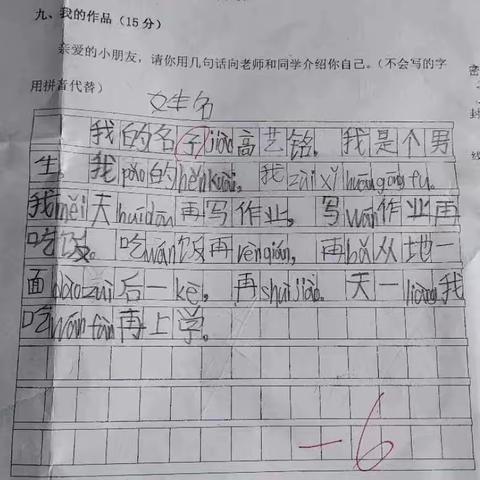 九、我的作品（15分）
亲爱的小朋友，请你用几句话向老师和同学介绍你自己。（不会写的字
用拼音代替）
女生名
我的名子jiào高艺铭。我是个男
生。我pǎo的hěnkuài，我zuìxǐhuāngōngfu。
我měi天huídào再写作业。写wán作业再
吃饭。吃wán饭再，再bǎ从地一
面dàozuì后一kè，再shuìjiào。天一liàng我
吃wánfàn再上学。
-6
密
封
线